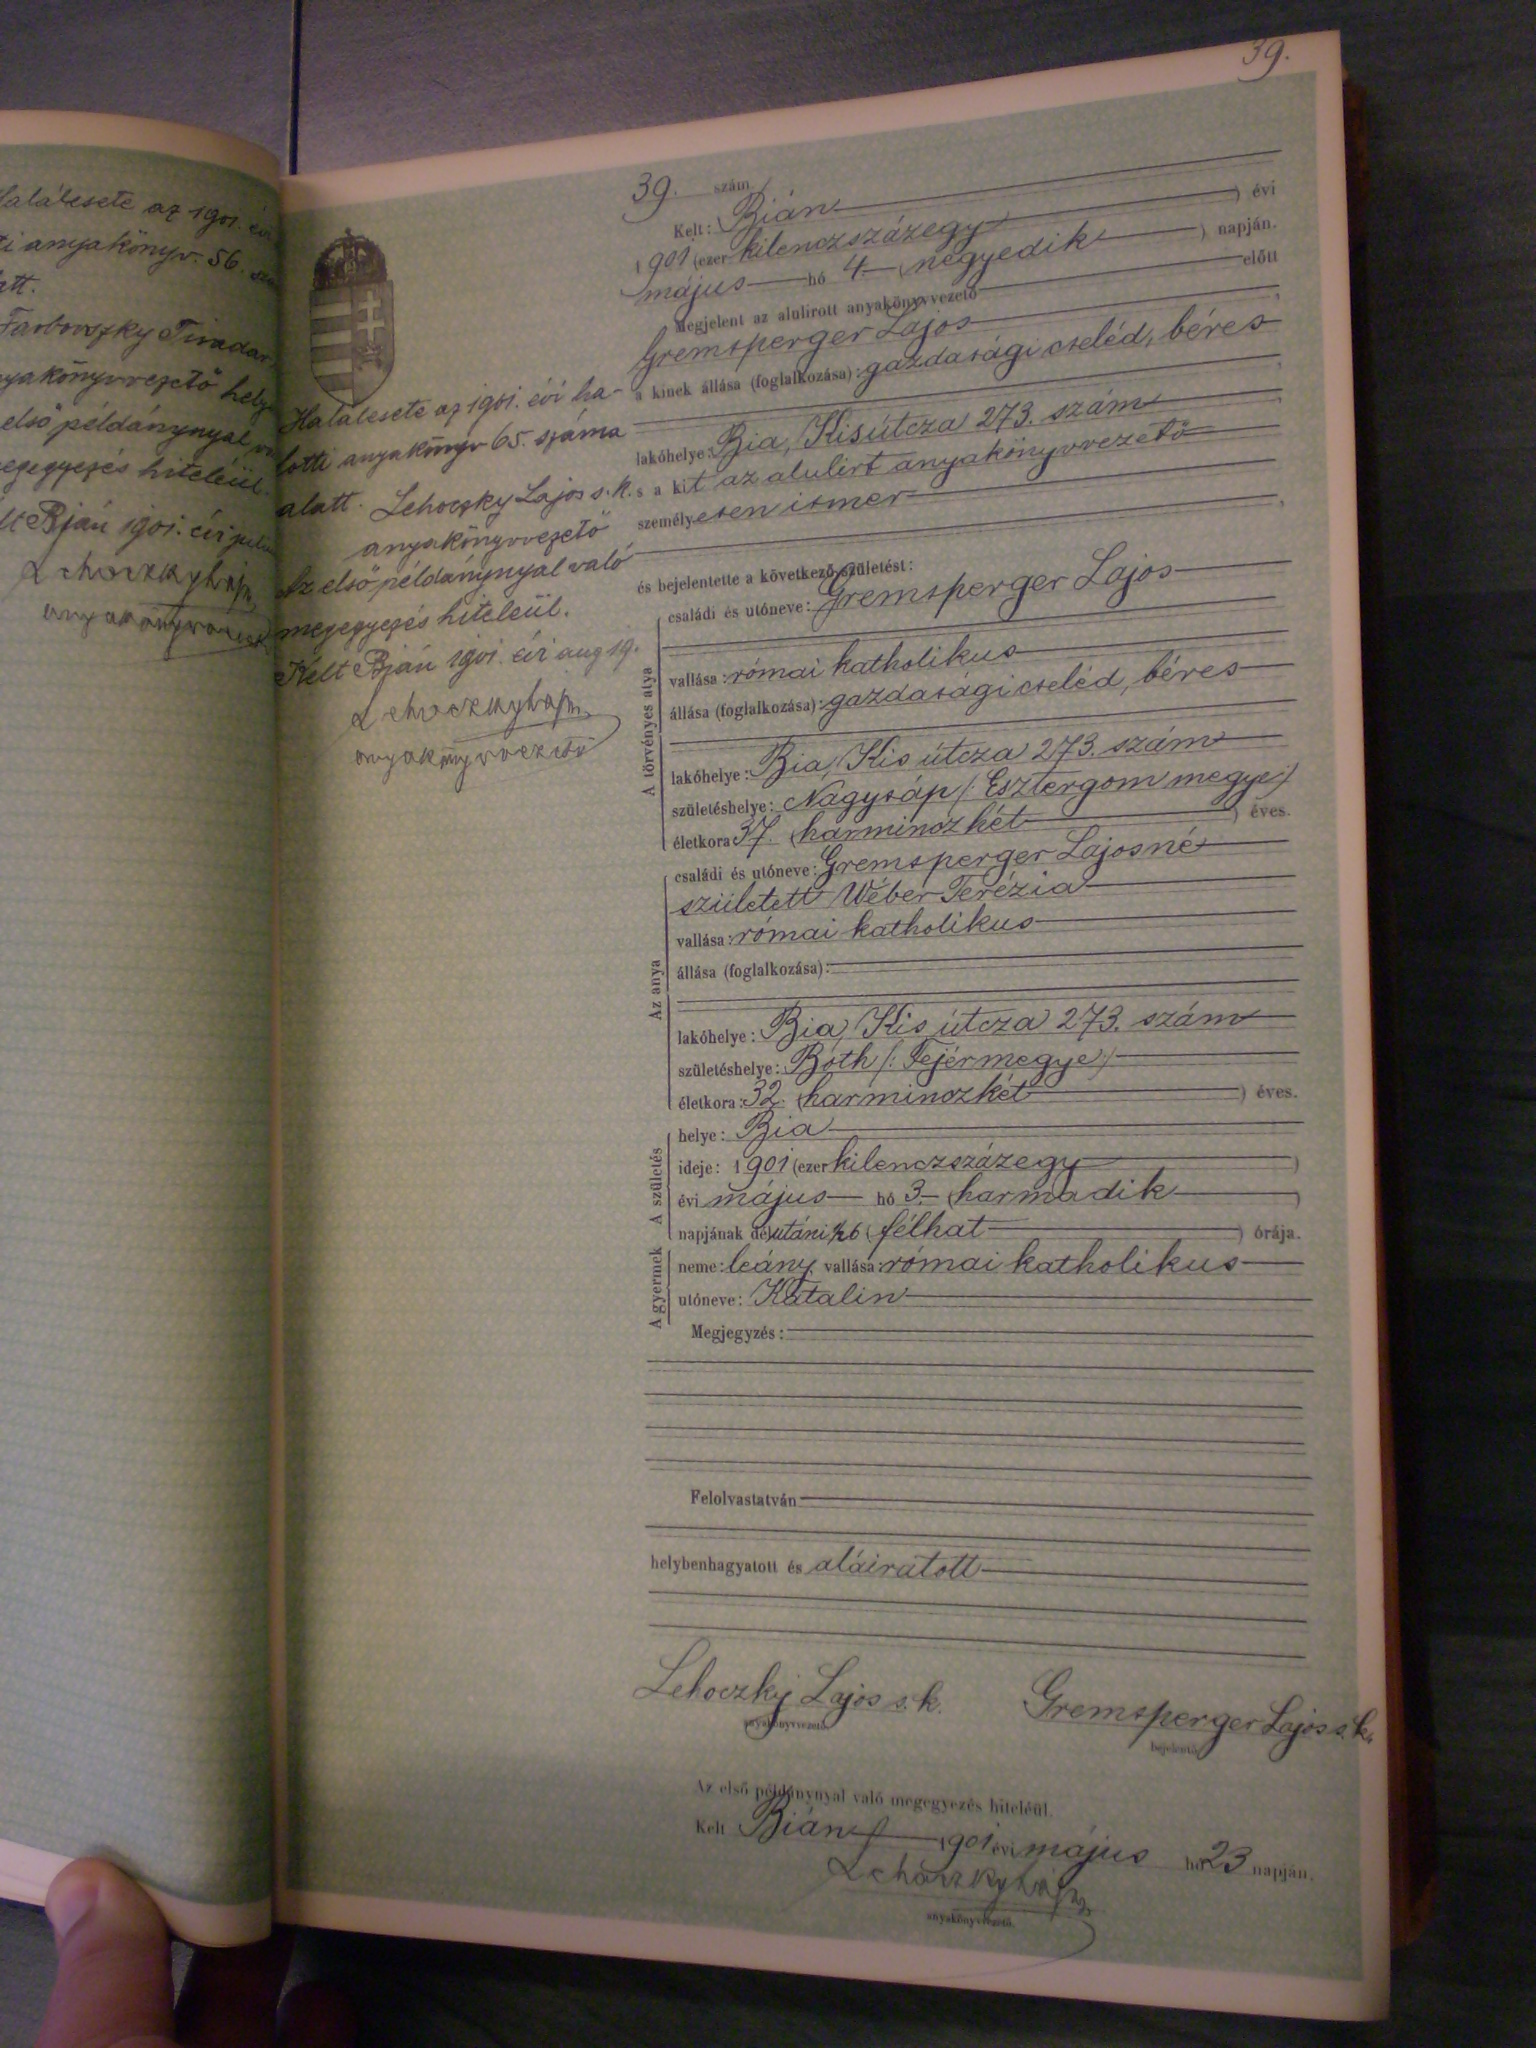 39.
Halálesete az 1901. évi
anyakönyv. 56.
att.
Tivadar
első példánynyal
hiteléül.
Bián 1901. évi
39. szám
Kelt: Bián
1901 (ezer kilenczszázegy) évi
május hó 4. (negyedik) napján.
Megjelent az alulirott anyakönyvvezető előtt
Gremsperger Lajos
a kinek állása (foglalkozása): gazdasági cseléd, béres
lakóhelye: Bia, Kisútcza 273. szám
s a kit az alulirt anyakönyvvezető
személyesen ismer
és bejelentette a következő születést:
A törvényes atya
családi és utóneve: Gremsperger Lajos
vallása: római katholikus
állása (foglalkozása): gazdasági cseléd, béres
lakóhelye: Bia, Kis útcza 273. szám
születéshelye: Nagysáp /: Esztergom megye:/
életkora 37. (harmincz hét) éves.
Az anya
családi és utóneve: Gremsperger Lajosné
született Wéber Terézia
vallása: római katholikus
állása (foglalkozása):
lakóhelye: Bia, Kis útcza 273. szám
születéshelye: Both /: Fejérmegye:/
életkora: 32. (harminczkét) éves.
A születés
helye: Bia
ideje: 1901 (ezer kilenczszázegy)
évi május hó 3. (harmadik)
napjának délutáni ½6 (félhat) órája.
A gyermek
neme: leány, vallása: római katholikus
utóneve: Katalin
Megjegyzés:
Felolvastatván
helybenhagyatott és aláiratott
Lehoczky Lajos s.k.
anyakönyvvezető.
Gremsperger Lajos s.k.
bejelentő.
Az első példánynyal való megegyezés hiteléül.
Kelt Bián 1901 évi május hó 23 napján.
Lehoczky Lajos
anyakönyvvezető.
Halálesete az 1901. évi ha-
lotti anyakönyv 65. száma
alatt. Lehoczky Lajos s.k.
anyakönyvvezető
Az első példánynyal való
megegyezés hiteléül.
Kelt Bián 1901. évi aug 19.
Lehoczky Lajos
anyakönyvvezető